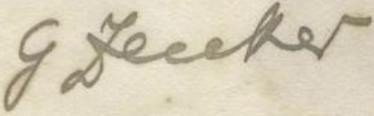 G Zenker